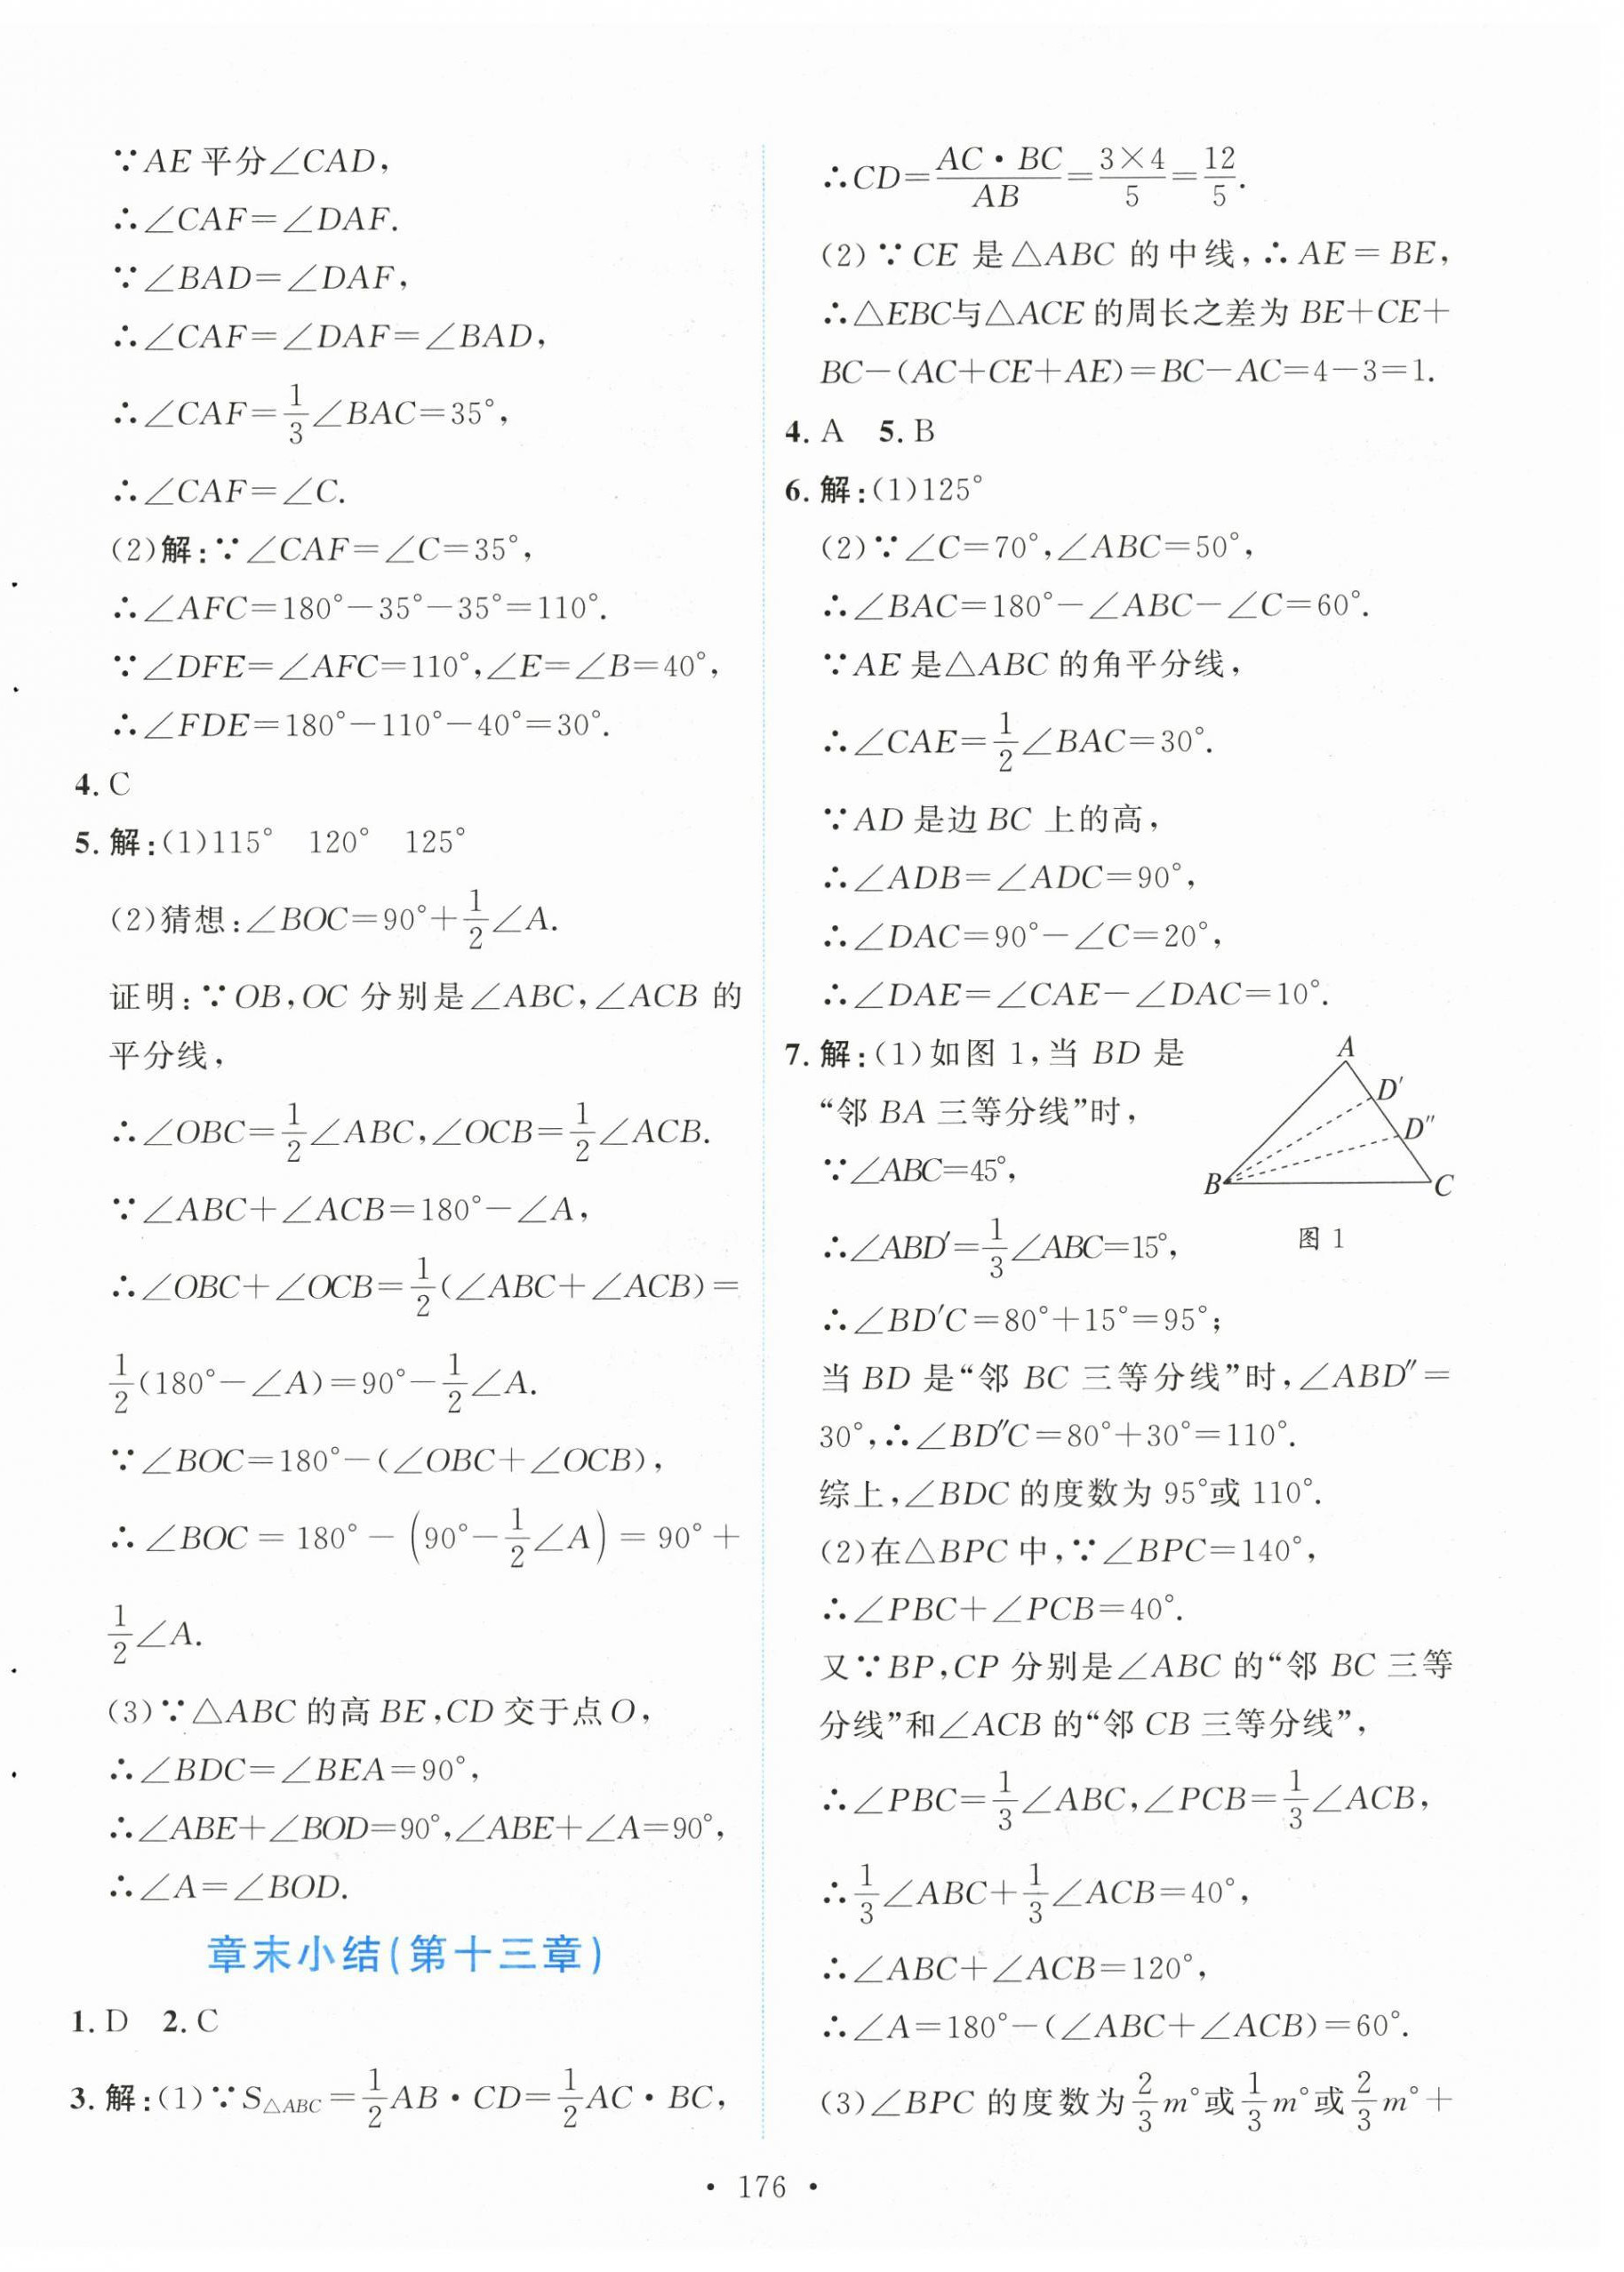 ∵AE 平分∠CAD，
∴∠CAF=∠DAF.
∵∠BAD=∠DAF，
∴∠CAF=∠DAF=∠BAD，
∴∠CAF=1/3∠BAC=35°，
∴∠CAF=∠C.
(2)解：∵∠CAF=∠C=35°，
∴∠AFC=180°-35°-35°=110°.
∵∠DFE=∠AFC=110°，∠E=∠B=40°，
∴∠FDE=180°-110°-40°=30°.
4. C
5. 解：(1)115° 120° 125°
(2)猜想：∠BOC=90°+1/2∠A.
证明：∵OB，OC 分别是∠ABC，∠ACB 的
平分线，
∴∠OBC=1/2∠ABC，∠OCB=1/2∠ACB.
∵∠ABC+∠ACB=180°-∠A，
∴∠OBC+∠OCB=1/2(∠ABC+∠ACB)=
1/2(180°-∠A)=90°-1/2∠A.
∵∠BOC=180°-(∠OBC+∠OCB)，
∴∠BOC=180°-(90°-1/2∠A)=90°+
1/2∠A.
(3)∵△ABC 的高 BE，CD 交于点 O，
∴∠BDC=∠BEA=90°，
∴∠ABE+∠BOD=90°，∠ABE+∠A=90°，
∴∠A=∠BOD.
章末小结(第十三章)
1. D 2. C
3. 解：(1)∵S△ABC=1/2AB·CD=1/2AC·BC，
∴CD=AC·BC/AB=3×4/5=12/5.
(2)∵CE 是△ABC 的中线，∴AE=BE，
∴△EBC与△ACE 的周长之差为 BE+CE+
BC-(AC+CE+AE)=BC-AC=4-3=1.
4. A 5. B
6. 解：(1)125°
(2)∵∠C=70°，∠ABC=50°，
∴∠BAC=180°-∠ABC-∠C=60°.
∵AE 是△ABC 的角平分线，
∴∠CAE=1/2∠BAC=30°.
∵AD 是边 BC 上的高，
∴∠ADB=∠ADC=90°，
∴∠DAC=90°-∠C=20°，
∴∠DAE=∠CAE-∠DAC=10°.
7. 解：(1)如图 1，当 BD 是
“邻 BA 三等分线”时，
∵∠ABC=45°，
∴∠ABD′=1/3∠ABC=15°，
A
D′
D″
B
C
图 1
∴∠BD′C=80°+15°=95°；
当 BD 是“邻 BC 三等分线”时，∠ABD″=
30°，∴∠BD″C=80°+30°=110°.
综上，∠BDC 的度数为 95°或 110°.
(2)在△BPC 中，∵∠BPC=140°，
∴∠PBC+∠PCB=40°.
又∵BP，CP 分别是∠ABC 的“邻 BC 三等
分线”和∠ACB 的“邻 CB 三等分线”，
∴∠PBC=1/3∠ABC，∠PCB=1/3∠ACB，
∴1/3∠ABC+1/3∠ACB=40°，
∴∠ABC+∠ACB=120°，
∴∠A=180°-(∠ABC+∠ACB)=60°.
(3)∠BPC 的度数为2/3m°或1/3m°或2/3m°+
· 176 ·